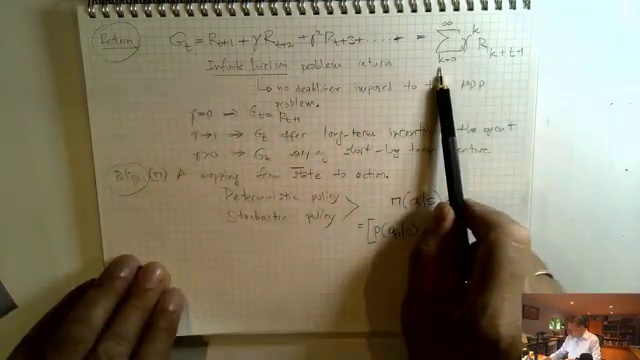 Return G_t = R_{t+1} + γ R_{t+2} + γ² R_{t+3} + ..... + = ∑_{k=0}^{∞} γ^k R_{k+t+1}
Infinite horizon problem return
↳ no deadline imposed to MDP
problem.
γ=0 → G_t = R_{t+1}
γ→1 → G_t offer long-term incenti the agent
γ>0 → G_t short- term
Policy (π) A mapping from state to action.
Deterministic policy
π(a|s)
Stochastic policy
= [p(a_0|s)